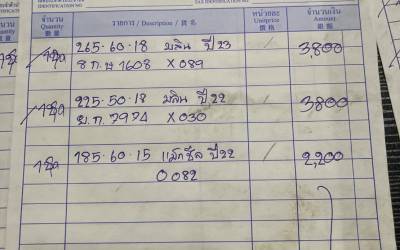 จำนวน Quantity 數量 รายการ / Description / 貨名 หน่วยละ Unitprice 價格 จำนวนเงิน Amount 銀額
1 ชุด 265-60-18 มลิน ปี 23 / 3,800
8 ก.ษ 1608 X 089
1 ชุด 225-50-18 มลิน ปี 22 / 3800
ย.ก. 7974 X 030
1 ชุด 185-60-15 แม็กซีส ปี 22 / 2,200
0 082